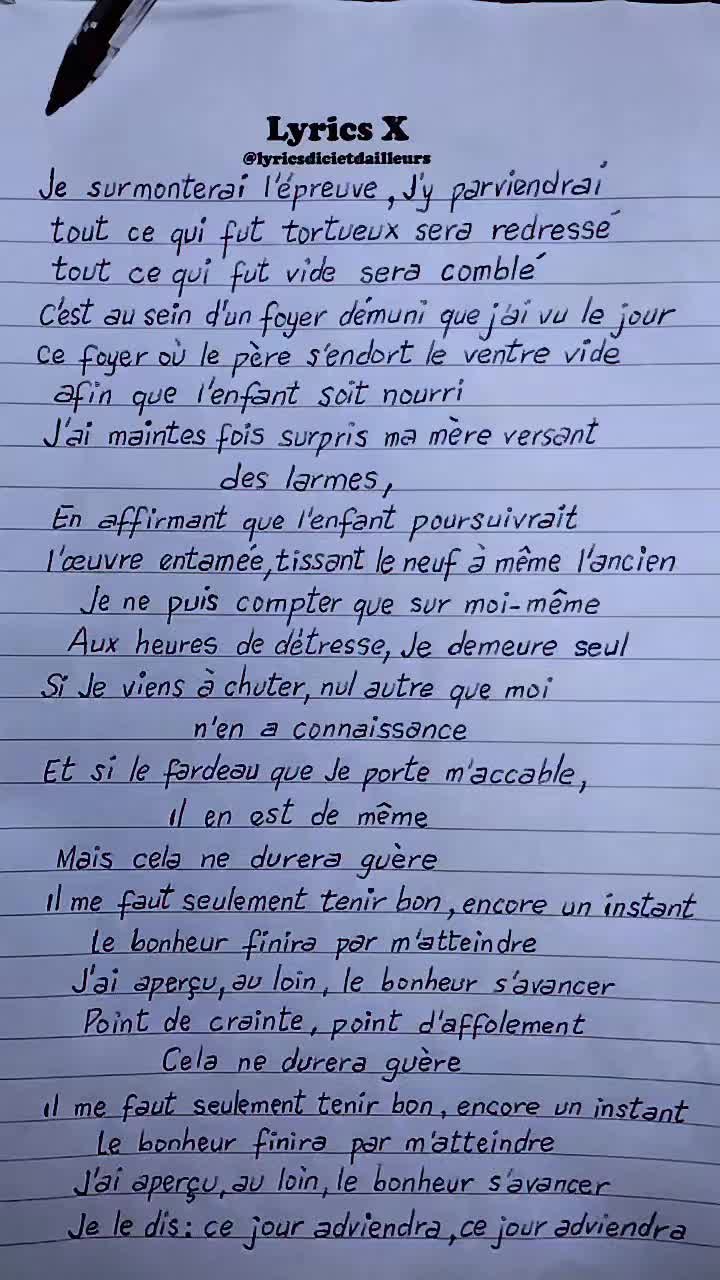 Lyrics X
@lyricsdicietdailleurs
Je surmonterai l'épreuve, J'y parviendrai
tout ce qui fut tortueux sera redressé
tout ce qui fut vide sera comblé
C'est au sein d'un foyer démuni que j'ai vu le jour
ce foyer où le père s'endort le ventre vide
afin que l'enfant soit nourri
J'ai maintes fois surpris ma mère versant
des larmes,
En affirmant que l'enfant poursuivrait
l'œuvre entamée, tissant le neuf à même l'ancien
Je ne puis compter que sur moi-même
Aux heures de détresse, Je demeure seul
Si Je viens à chuter, nul autre que moi
n'en a connaissance
Et si le fardeau que Je porte m'accable,
il en est de même
Mais cela ne durera guère
il me faut seulement tenir bon, encore un instant
Le bonheur finira par m'atteindre
J'ai aperçu, au loin, le bonheur s'avancer
Point de crainte, point d'affolement
Cela ne durera guère
il me faut seulement tenir bon, encore un instant
Le bonheur finira par m'atteindre
J'ai aperçu, au loin, le bonheur s'avancer
Je le dis : ce jour adviendra, ce jour adviendra